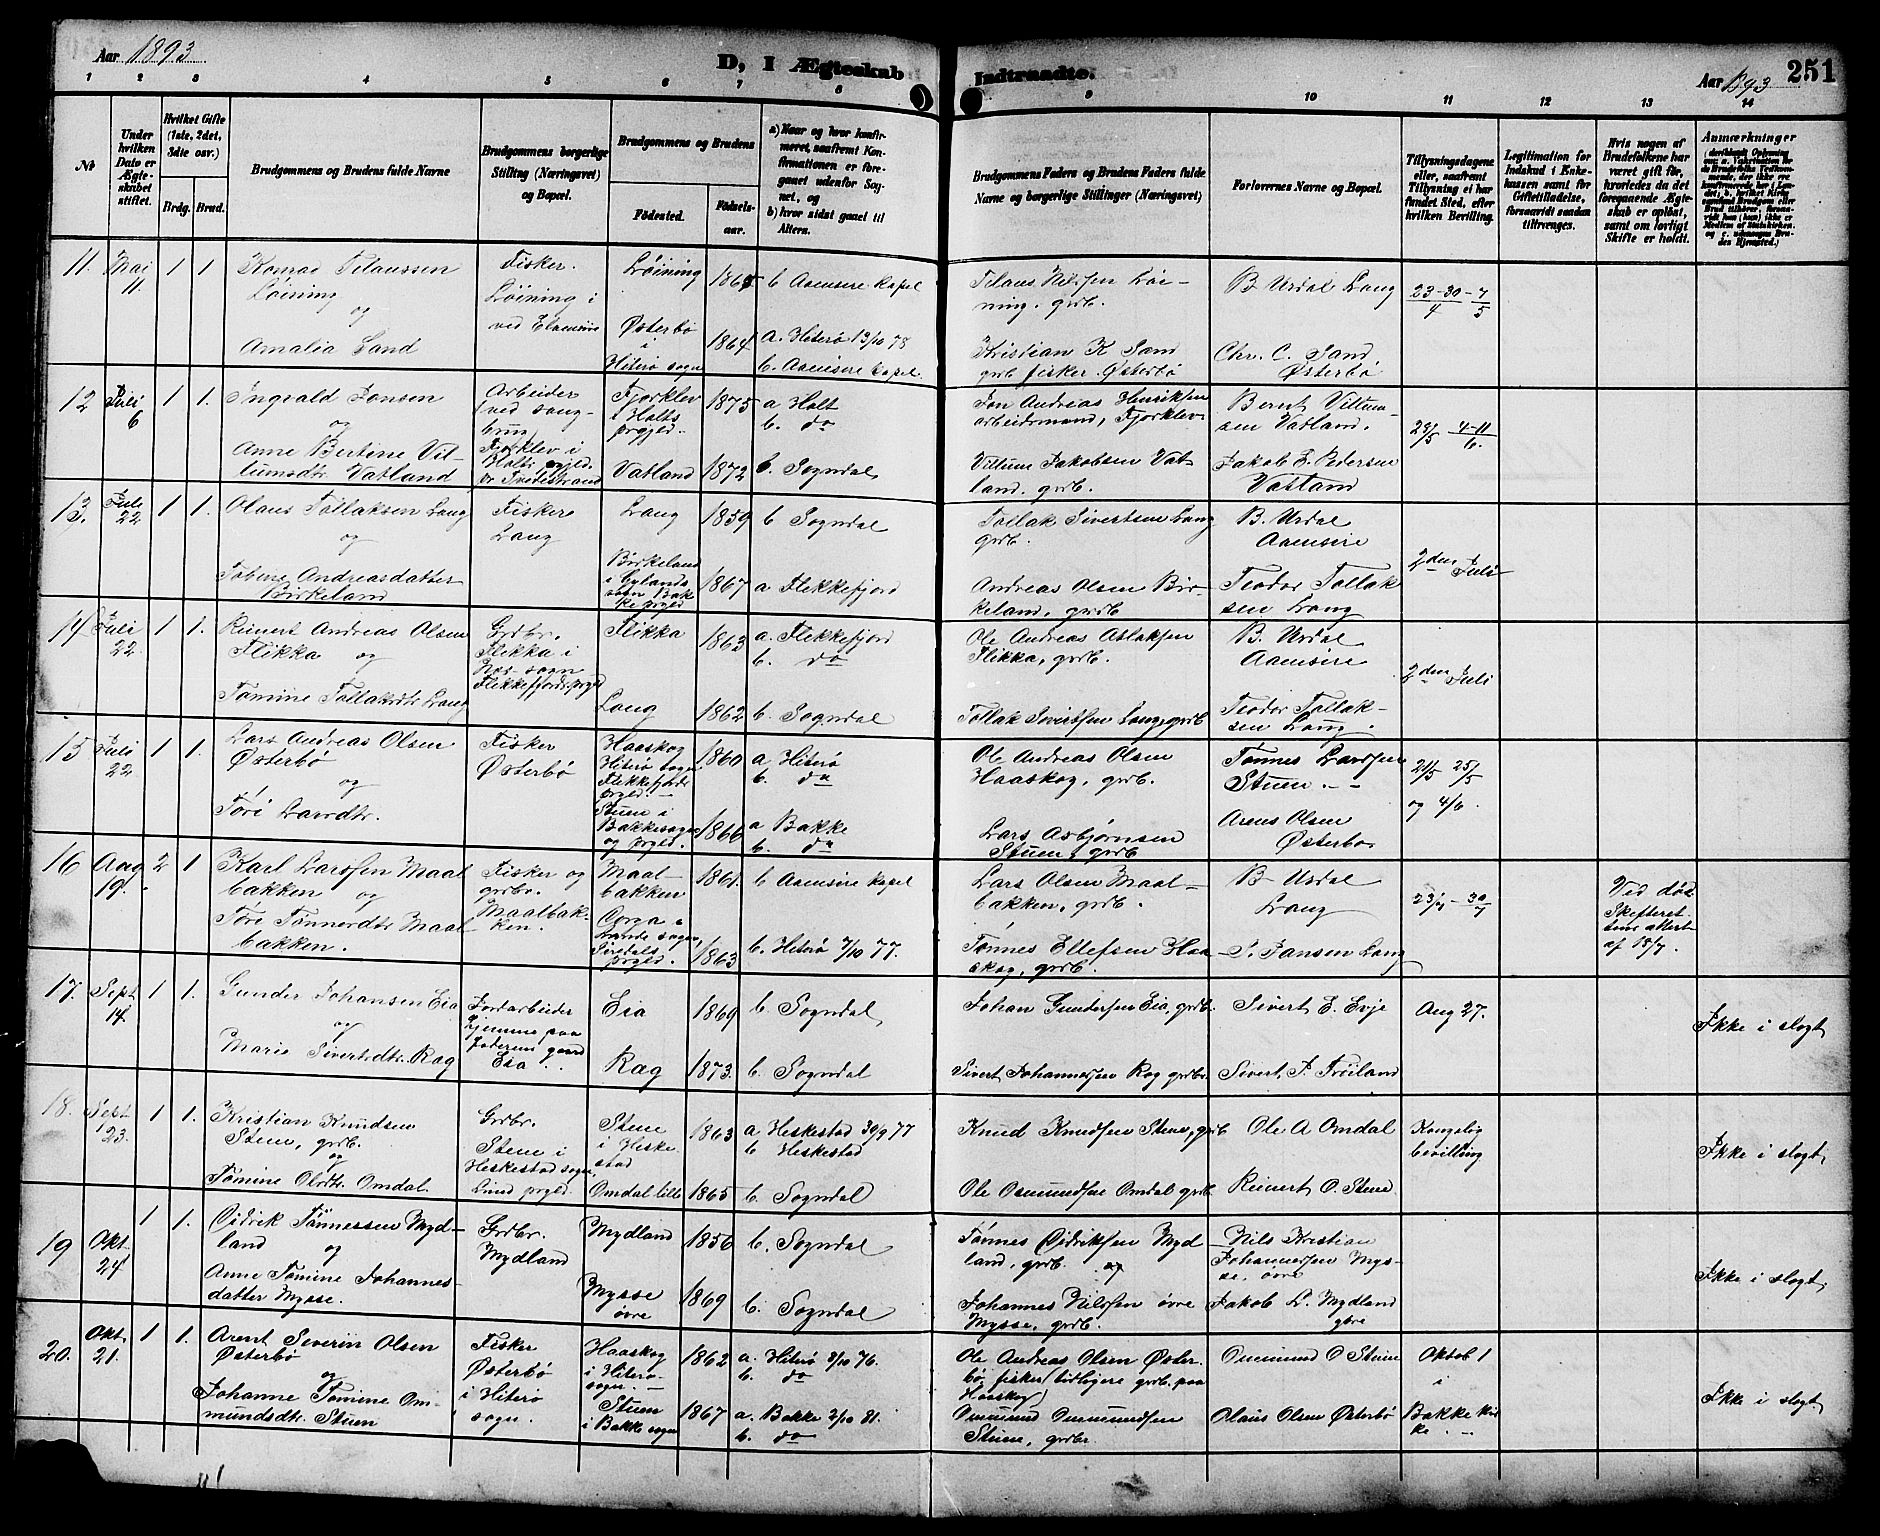 Aar 1893
D, I Ægteskab
Indtraadte.
Aar 1893
251
1 2 3 4 5 6 7 8 9 10 11 12 13 14
No
Under hvilken Dato er Ægteskabet stiftet.
Hvilket Gifte (1ste, 2det, 3die osv.)
Brdg. Brud.
Brudgommens og Brudens fulde Navne
Brudgommens borgerlige Stilling (Næringsvei) og Bopæl.
Brudgommens og Brudens
Fødested.
Fødselsaar.
a) Naar og hvor konfirmeret, saafremt Konfirmationen er foregaaet udenfor Sognet, og
b) hvor sidst gaaet til Alters.
Brudgommens Faders og Brudens Faders fulde Navne og borgerlige Stillinger (Næringsvei)
Forlovernes Navne og Bopæl.
Tillysningsdagene eller, saafremt Tillysning ei har fundet Sted, efter hvilken Bevilling.
Legitimation for Indskud i Enkekassen samt for Giftetilladelse, forsaavidt saadan tiltrænges.
Hvis nogen af Brudefolkene har været gift før, hvorledes da det foregaaende Ægteskab er opløst, samt om lovligt Skifte er holdt.
Anmærkninger
11. Mai 11. 1 1
Konrad Tilaussen
Løining
og
Amalia Sand
Fisker.
Løining i
Løining 1865 b Aaensire Kapel
Østerbø
i
Hiterø sogn
1864 a. Hiterø 13/10 78
b. Aaensire Kapel.
Tilaus Nilssen Løining. grdb.
Kristian K Sand
grdb fisker. Østerbø
B Urdal Laug
Chr. C. Sand,
Østerbø
23-30/4 - 7/5
12 Juli 6 1 1.
Ingvald Jonsen
og
Anne Bertine Villumsdtr. Vatland
Arbeider
Fjorklev i
Holts prgjld.
pr Tvedestrand
Fjorklev
i Holts
prgjld.
1875 a Holt
b. do
Vatland 1872 b. Sogndal
Jon Andreas Henriksen
arbeidsmand, Fjorklev
Villum Jakobsen Vatland. grdb.
Bernt Villumsen Vatland.
Jakob E. Pedersen
Vatland
28/5 4-11/6.
13. Juli 22 1 1.
Olaus Tollaksen Laug
og
Tobine Andreasdatter
Birkeland
Fisker
Laug
Laug 1859 b Sogndal
Birkeland
i Gylands
sogn Bakke prgld
1867 a Flekkefjord
Tollak Sivertsen Laug
grdb.
Andreas Olsen Birkeland, grdb
B. Urdal
Aaensire
Teodor Tollaksen Laug
2den Juli
14 Juli 22 1 1.
Reinert Andreas Olsen
Flikka og
Tomine Tollaksdtr. Laug
Grdbr.
Flikka i
Nes sogn
Flekkefjords prgld
Flikka 1863 a. Flekkefjord
b. do
Laug 1862 b. Sogndal
Ole Andreas Aslaksen
Flikka, grdb.
Tollak Sivertsen Laug, grdb
B. Urdal
Aaensire
Teodor Tollaksen Laug.
2den Juli
15 Juli 22 1 1.
Lars Andreas Olsen
Østerbø
og
Tøri Larsdtr.
Fisker
Østerbø
Haaskog
Hiterø sogn
Flekkefjords
prgld. —
1860 a Hiterø
b. do
Stuen i
Bakke sogn
og prgld.
1866 a Bakke
b. do
Ole Andreas Olsen
Haaskog, grdb.
Lars Asbjørnsen
Stuen, grdb
Tønnes Larssen
Stuen. —
Arens Olsen
Østerbø
21/5 25/5
og 4/6.
16 Aug 19. 2 1
Karl Larssen Maalbakken og
Tøri Tønnesdtr Maalbakken.
Fisker og
grdbr.
Maalbakken.
Maalbakken
1861. b Aaensire Kapel
Lunde sogn,
Sirdals
prgld.
1863 b. Hiterø 7/10 77.
Lars Olsen Maalbakken, grdb.
Tønnes Ellefsen Haaskog, grdb.
B Urdal
Laug
S. Jansen Laug
23/7 - 30/7
Ved død
Skifteret-
tens attest
af 18/7.
17. Sept 14. 1 1.
Gunder Johansen Eia
og
Marie Sivertsdtr. Rag
Jordarbeider
hjemme paa
faderens gaard
Eia.
Eia 1869 b. Sogndal,
Rag 1873. b. Sogndal
Johan Gundersen Eia, grdbr.
Sivert Johannessen Rag grdbr.
Sivert E. Evje
Sivert. J. Frøiland
Aug 27.
Ikke i slegt
18. Sept 23. 1 1.
Kristian Knudsen
Stene, grdb.
og
Tomine Olsdtr. Omdal.
Grdbr.
Stene i
Heskestad sogn,
Lund prgld.
Stene
i Heskestad
1863 a Heskestad 30/9 77
b Heskestad
Omdal lille 1865 b. Sogndal
Knud Knudsen Stene, grdb
Ole Osmundsen Omdal grdb.
Ole A Omdal
Reinert O. Stene
Kongelig
bevilling
Ikke i slegt,
19 Okt. 24. 1 1.
Didrik Tønnessen Mydland
og
Anne Tomine Johannesdatter Mysse.
Grdbr.
Mydland
Mydland 1856 b. Sogndal
Mysse
øvre
1869 b. Sogndal
Tønnes Didriksen Mydland, grdb. og
Johannes Nilssen øvre
Mysse, grdb.
Nils Kristian
Johannessen Mysse, øvre
Jakob L. Mydland
Ikke i slegt,
20. Okt. 21. 1 1.
Arent Severin Olsen
Østerbø
og
Johanne Tomine Ommundsdtr. Stuen
Fisker
Østerbø
i Hiterø
sogn.
Haaskog
i Hiterø
sogn. —
1862 a. Hiterø 8/10 76.
b. do
Stuen
i Bakke sogn
1867 a. Bakke 2/10 81.
b. do
Ole Andreas Olsen Østerbø, fisker (tidligere grdb. paa
Haaskog)
Ommund Ommundsen
Stuen, grdbr.
Ommund O Stuen
Olaus Olsen Østerbø
Oktob 1
i
Bakke kirke. —
Ikke i slegt,